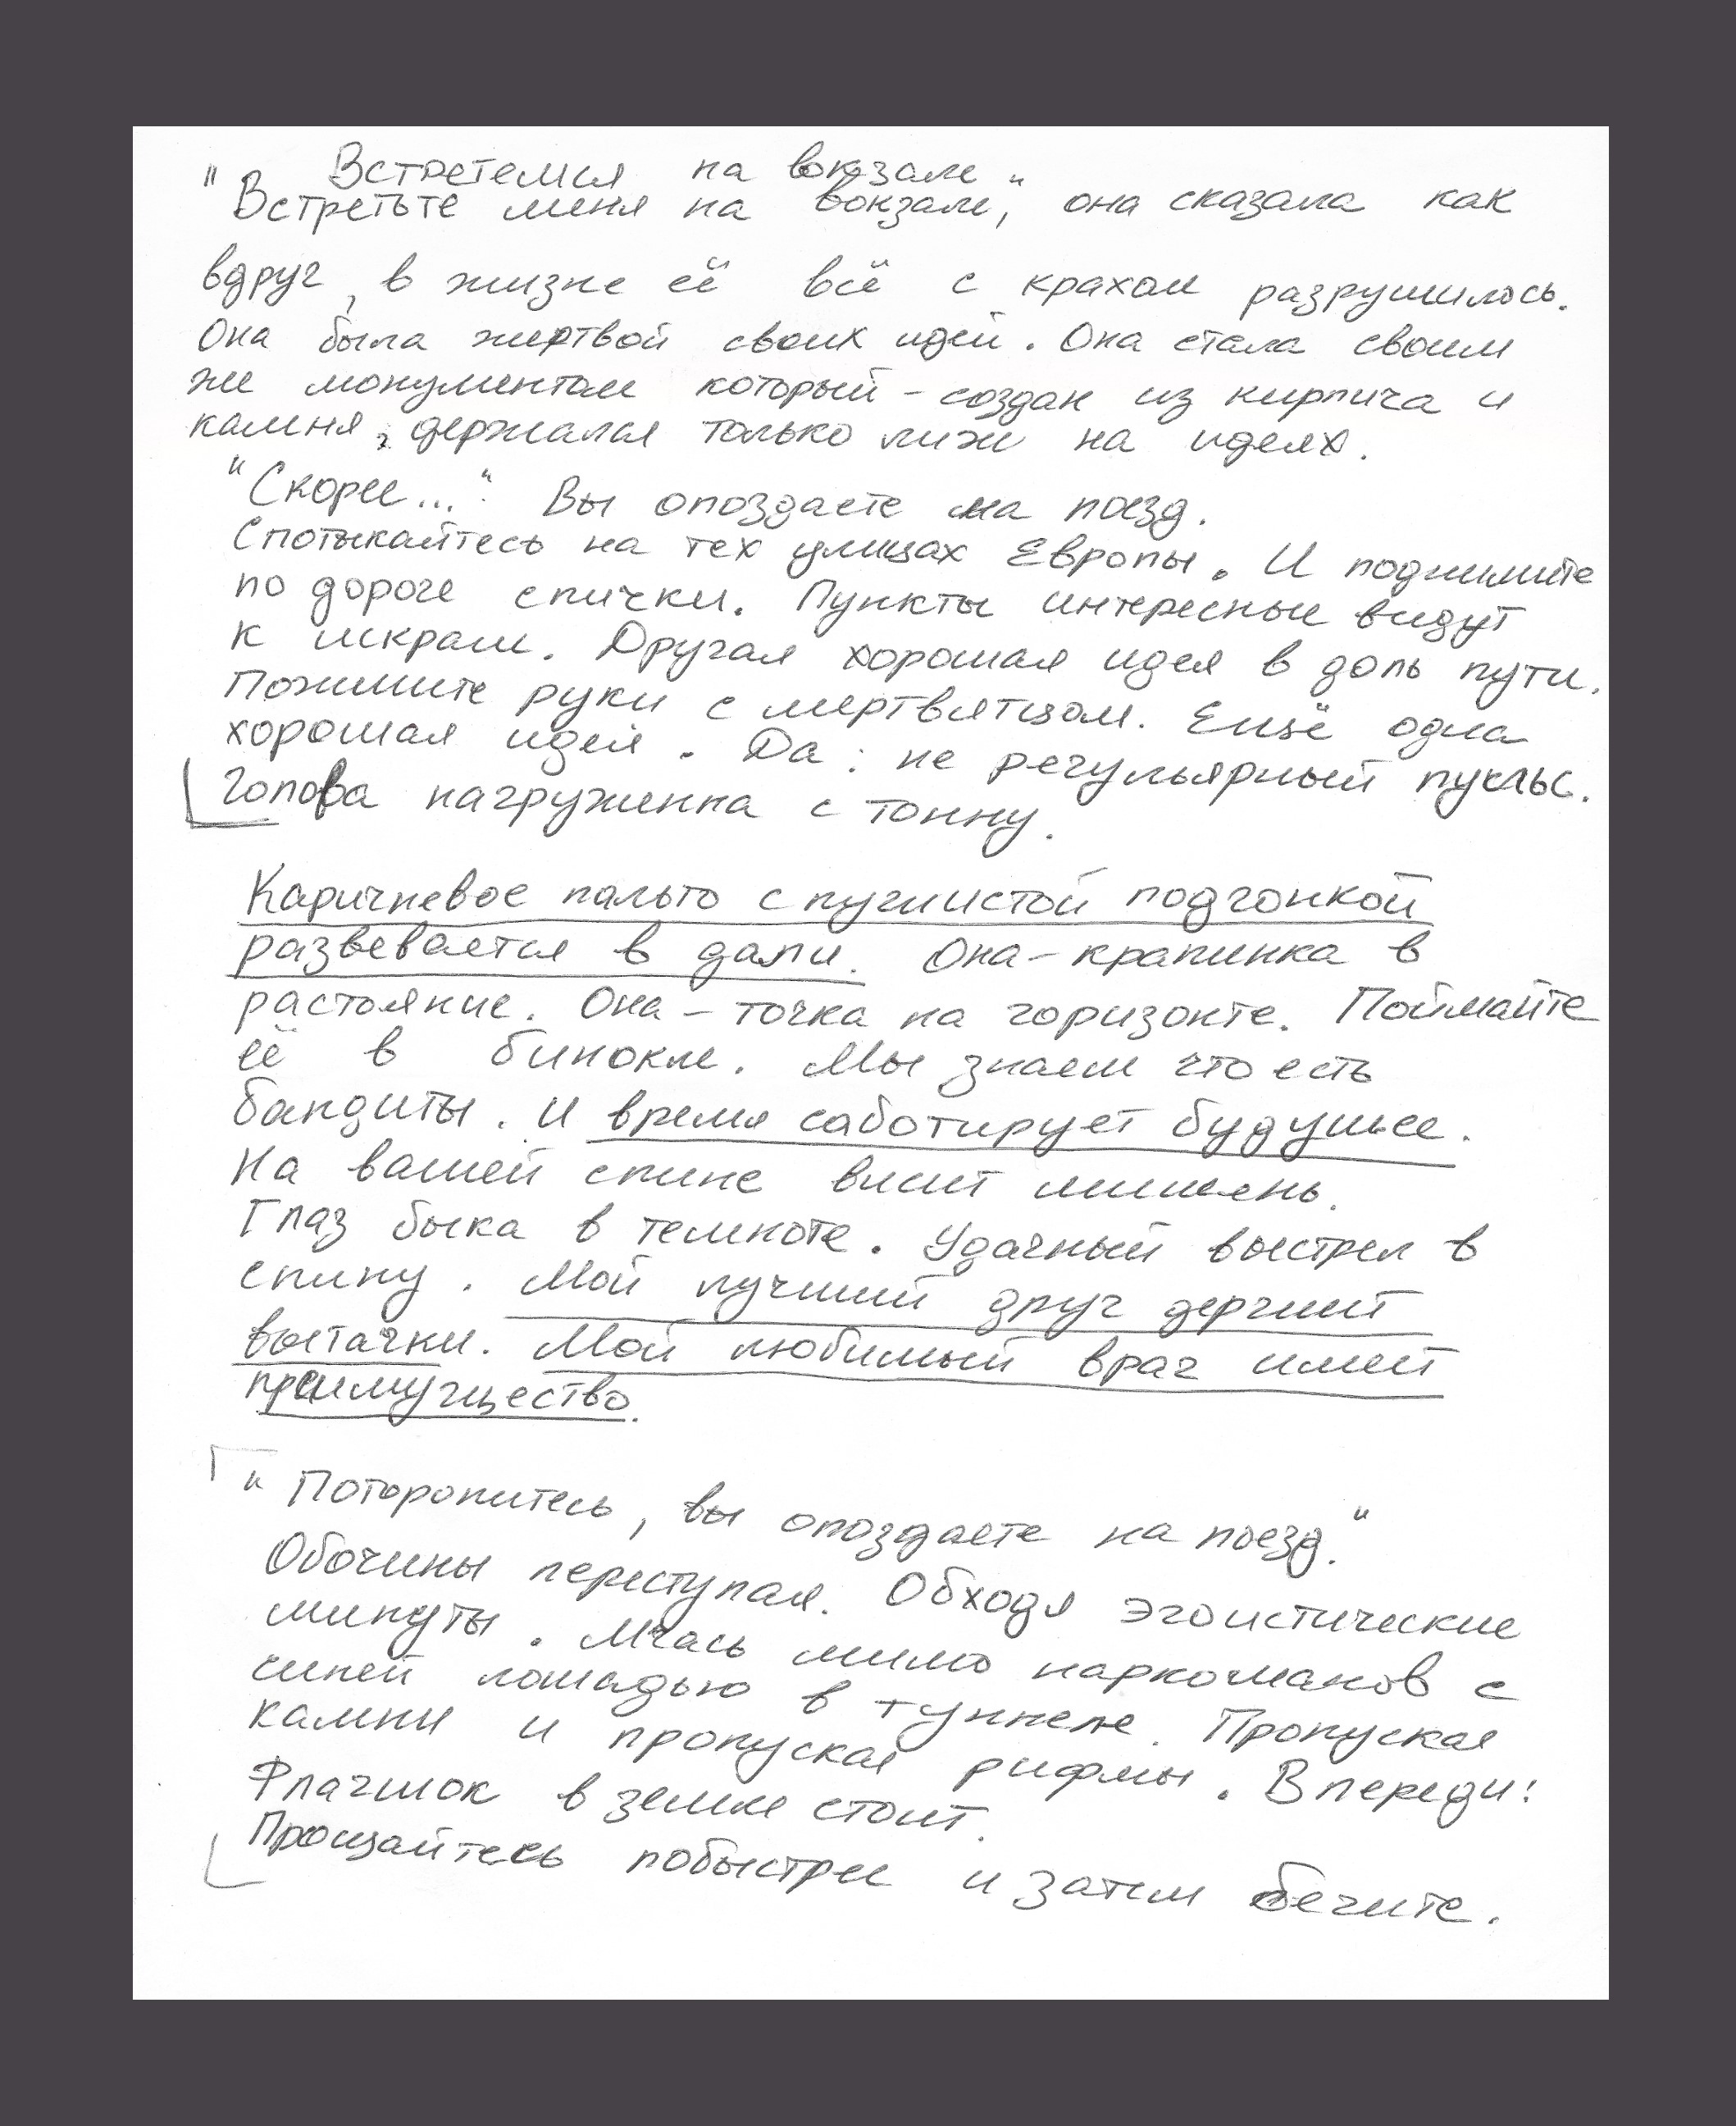 Встретемся на вокзале
"Встретьте меня на вокзале", она сказала как
вдруг, в жизне её всё с крахом разрушилось.
Она была жертвой своих идей. Она стала своим
же монументом который - создан из кирпича и
камня, держался только лиж на идеях.
"Скорее..." Вы опоздаете на поезд.
Спотыкайтесь на тех улицах Европы. И поднимите
по дороге спички. Пункты интересные видут
к искрам. Другая хорошая идея в доль пути.
Пожмите руки с мертвятцом. Ещё одна
хорошая идея. Да: не регульярный пульс.
Голова нагруженна с тонну.
Каричневое пальто с пушистой подгонкой
развевается в дали. Она - крапинка в
растояние. Она - точка на горизонте. Поймайте
её в бинокле. Мы знаем что есть
бандиты. И время саботирует будушее.
На вашей спине висит мишень.
Глаз быка в темноте. Удачный выстрел в
спину. Мой лучший друг держит
выстачки. Мой любимый враг имеет
преимущество.
"Поторопитесь, вы опоздаете на поезд."
Обочины переступая. Обходя эгоистические
минуты. Мчась мимо наркоманов с
синей лошадью в туннеле. Пропуская
камни и пропуская рифмы. В переди:
Флагшок в земле стоит.
Прощайтесь побыстрее и затем бегите.